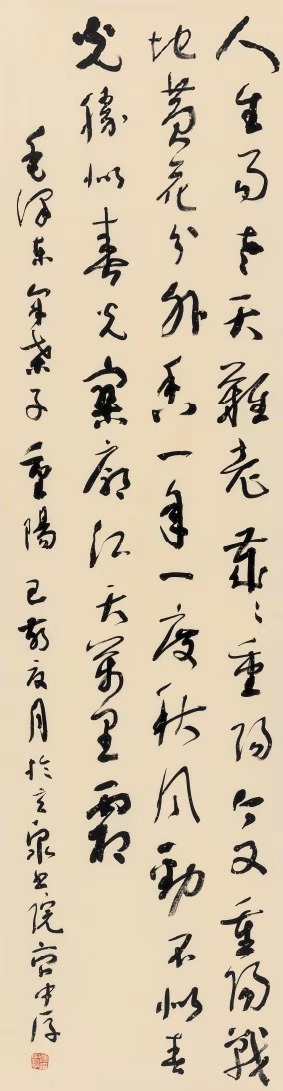 人生易老天難老歲々重陽今又重陽戰
地黄花分外香一年一度秋風勁不似春
光勝似春光寥廓江天萬里霜
毛澤東采桑子重陽己亥夏月於泉書院